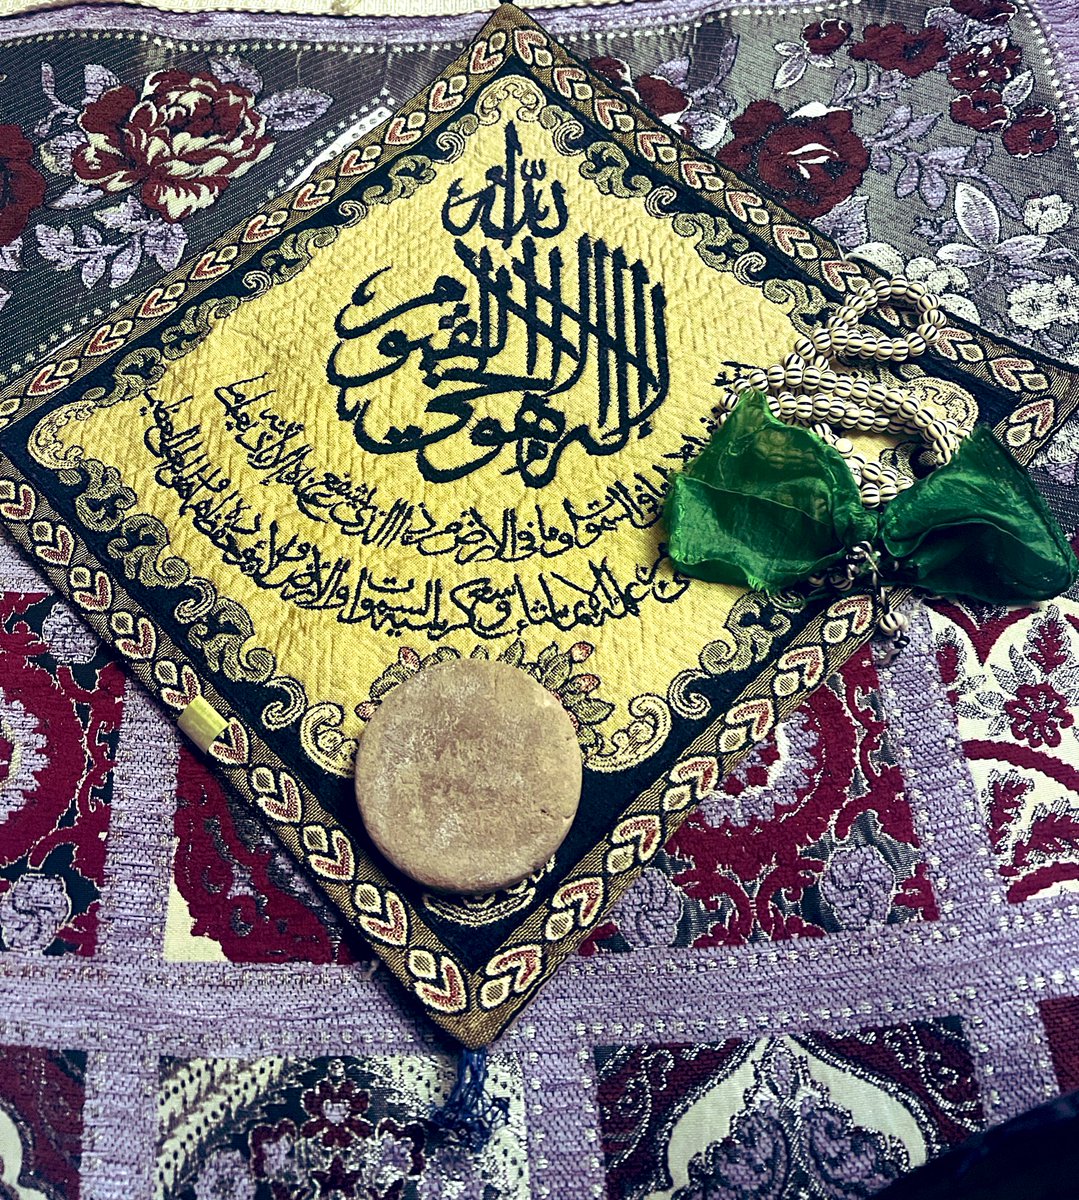 الله
لا إله إلا هو الحي القيوم
ما في السموات وما في الأرض من ذا الذي يشفع عنده إلا بإذنه يعلم ما
من علمه إلا بما شاء وسع كرسيه السموات والأرض ولا يؤده حفظهما وهو العلي العظيم